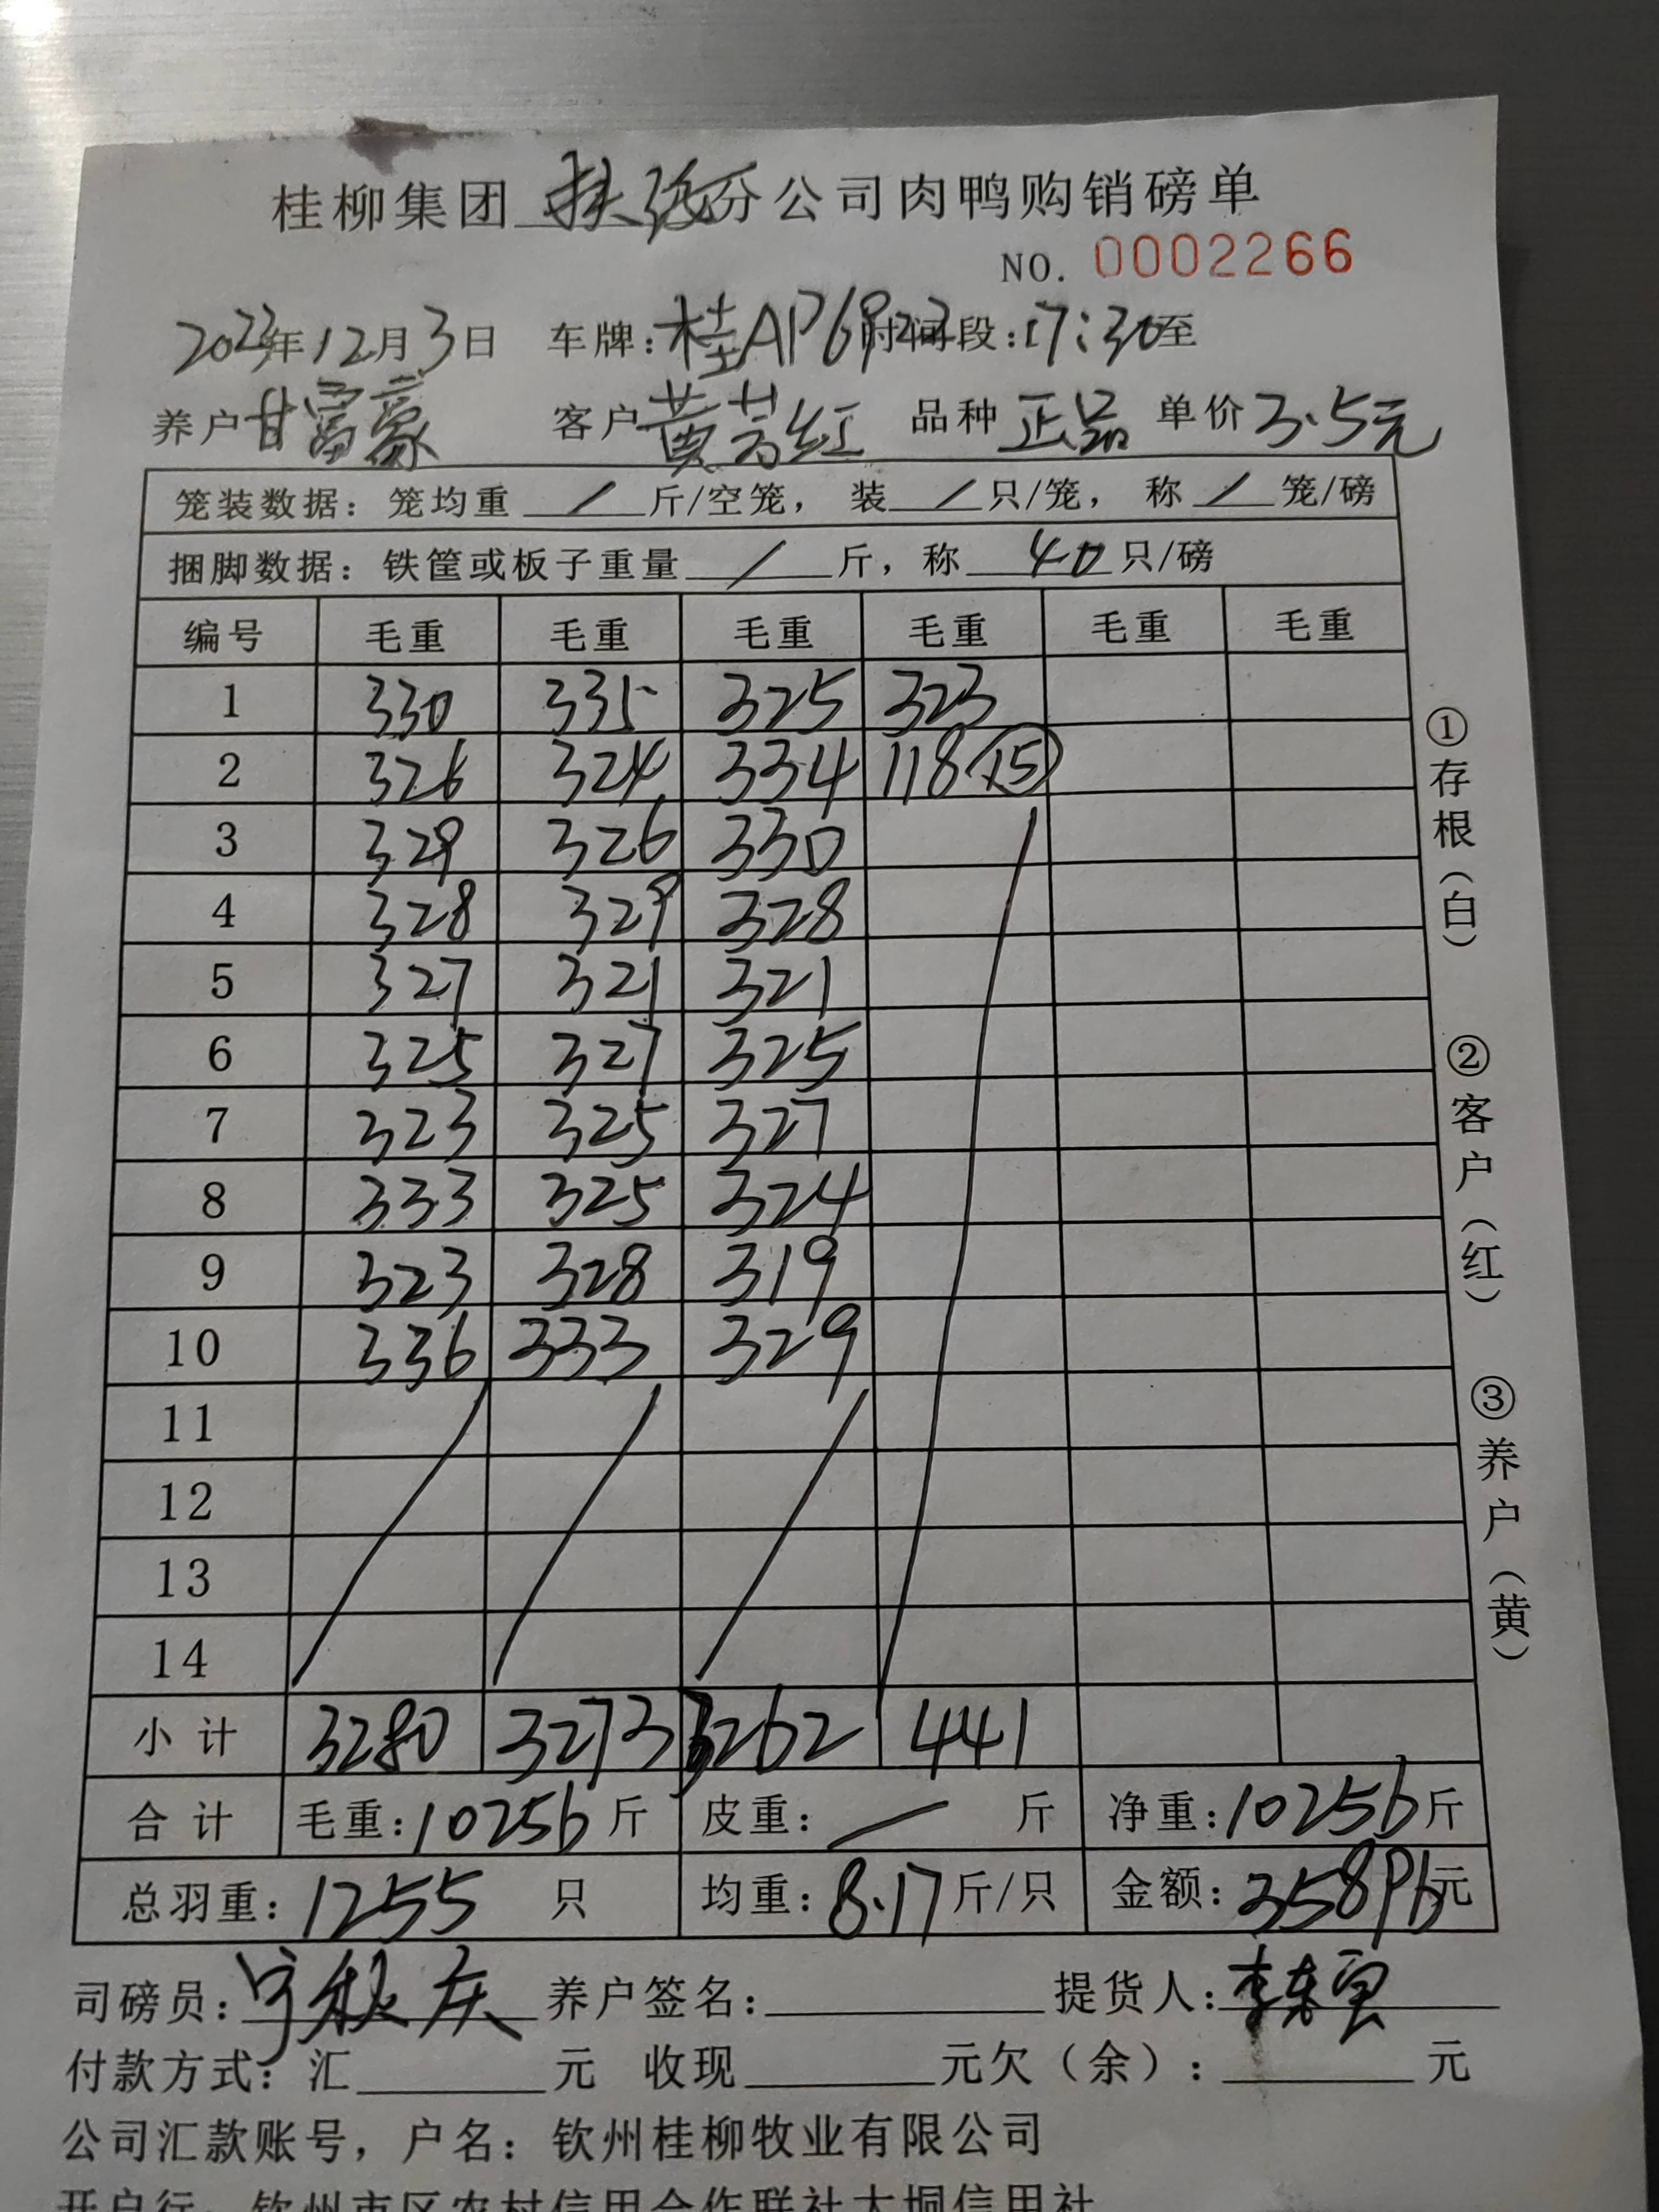 桂柳集团 扶绥分公司肉鸭购销磅单
NO. 0002266
2023年12月3日 车牌:桂AP6923 时间段:17:30至
养户甘富豪 客户黄芳红 品种 正品 单价3.5元
笼装数据: 笼均重 / 斤/空笼, 装 / 只/笼, 称 / 笼/磅
捆脚数据: 铁筐或板子重量 / 斤, 称 40 只/磅
编号 毛重 毛重 毛重 毛重 毛重 毛重
1 330 335 325 323
2 326 324 334 118 (15)
3 329 326 330
4 328 329 328
5 327 321 321
6 325 327 325
7 323 325 327
8 333 325 324
9 323 328 319
10 336 333 329
11
12
13
14
小计 3280 3273 3262 441
合计 毛重:10256斤 皮重: / 斤 净重:10256斤
总羽重:1255 只 均重:8.17斤/只 金额:35896元
司磅员: 养户签名: 提货人:
付款方式:汇 元 收现 元欠(余): 元
公司汇款账号, 户名: 钦州桂柳牧业有限公司
开户行: 钦州市区农村信用合作联社大垌信用社
①存根(白) ②客户(红) ③养户(黄)